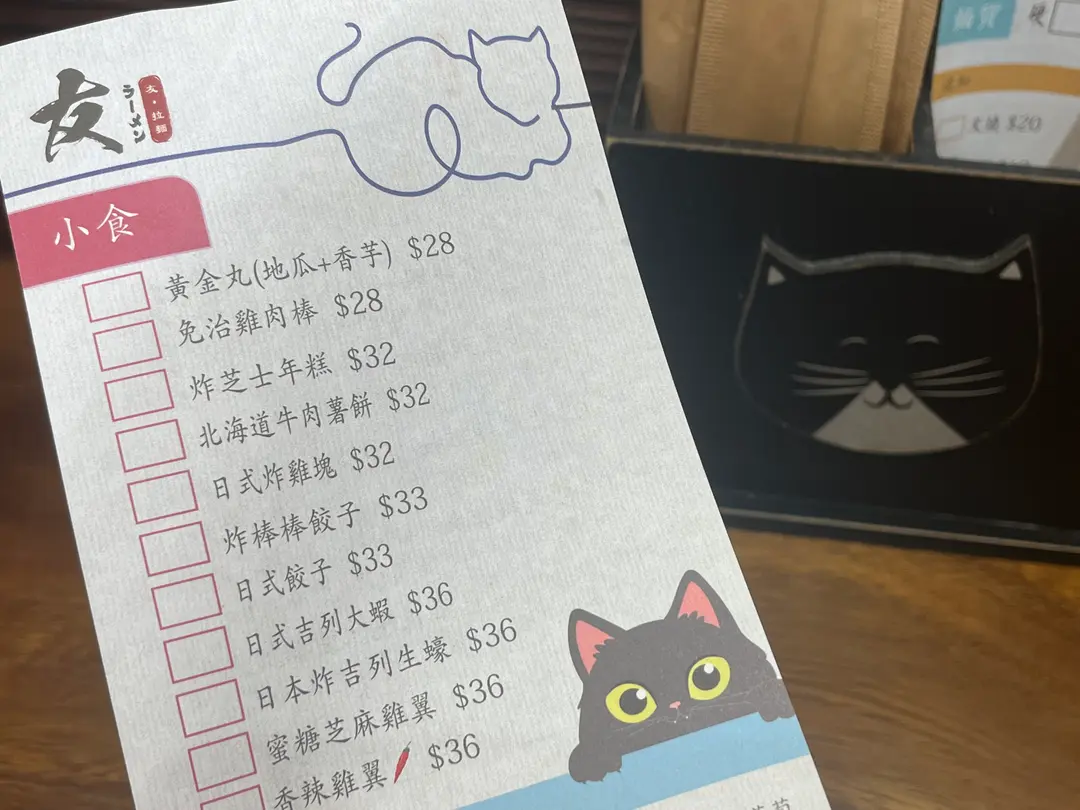 友
ラーメン
友・拉麵
小食
黃金丸(地瓜+香芋) $28
免治雞肉棒 $28
炸芝士年糕 $32
北海道牛肉薯餅 $32
日式炸雞塊 $32
炸棒棒餃子 $33
日式餃子 $33
日式吉列大蝦 $36
日本炸吉列生蠔 $36
蜜糖芝麻雞翼 $36
香辣雞翼 $36
硬
火燒 $20